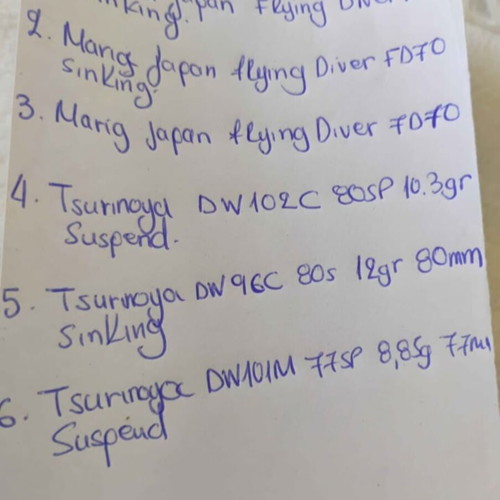 sinking. Japan Flying Diver
2. Marig Japan flying Diver FD70
Sinking.
3. Marig Japan flying Diver FD70
4. Tsurinoya DW102C 80SP 10.3gr
Suspend.
5. Tsurinoya DW96C 80s 12gr 80mm
Sinking
6. Tsurinoya DW101M 77SP 8,85g 77mm
Suspend